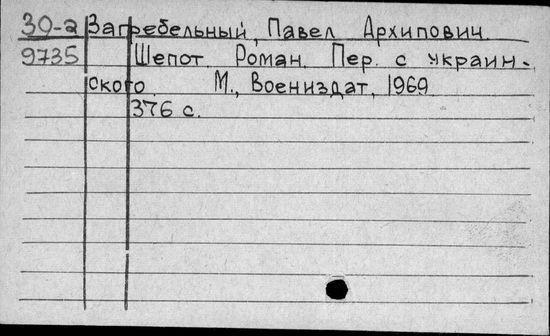 30-а Загребельный, Павел Архипович
9735 Шепот. Роман. Пер. с украин-
ского М., Воениздат, 1969
376 с.